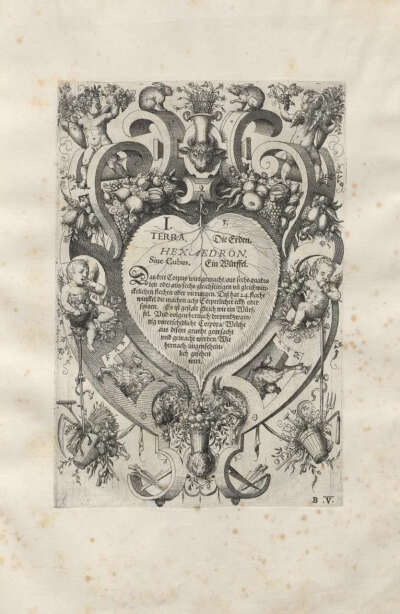 3
I.
TERRA. Die Erden.
HEXAEDRON,
Siue Cubus. Ein Würffel.
Das drit Corpus wirt gemacht aus sechs quadra
ten oder aus sechs gleichseitigen vnd gleichwin
cklichen flechen oder vierungen. Das hat 24. flache
winckel die machen acht Cörperlicher eck oder
spitzen. Es ist gestalt gleich wie ein Würf„
fel. Und volgen hernach
vnterschidliche Corpora Welche
aus disem grundt gemacht
vnd gemacht werden Wie
hernach augenschein„
lich gesehen
wirt.
B V.